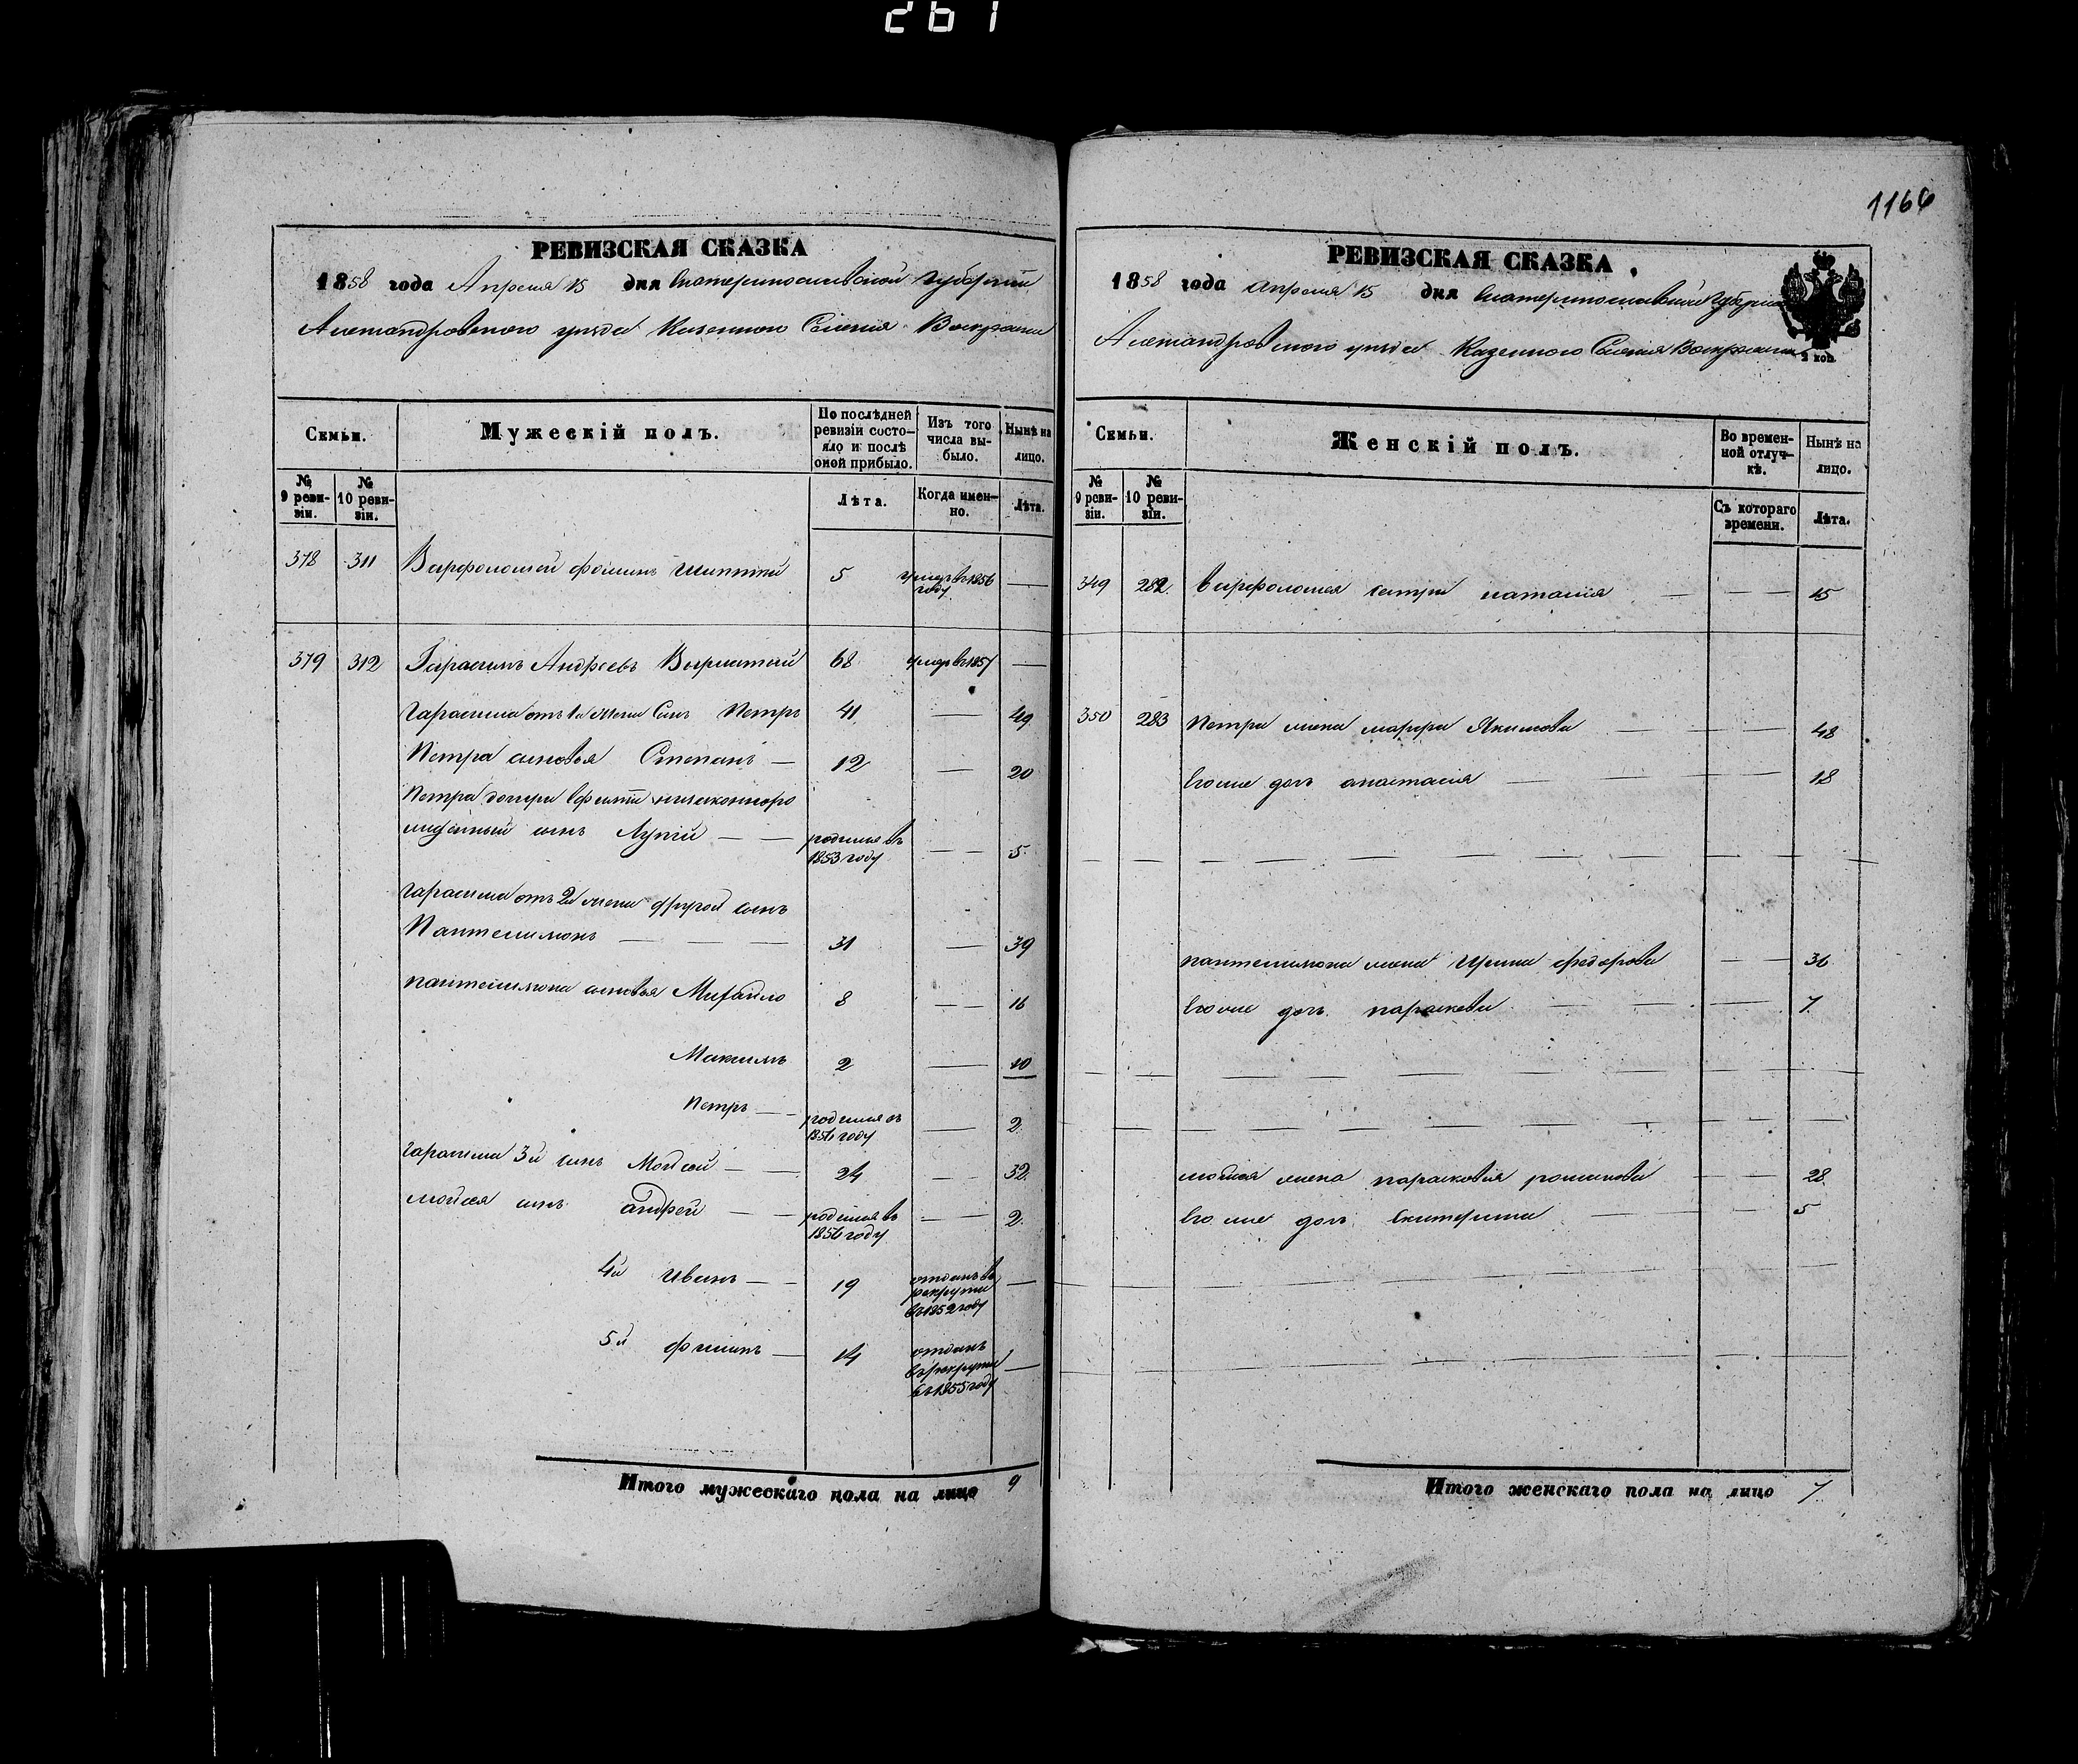 261
РЕВИЗСКАЯ СКАЗКА
1858 года Апреля 15 дня Екатеринославской губернии
Александровского уезда Казенного Селения Воскресенки
Семьи.
Мужескій полъ.
По послѣдней ревизіи состояло и послѣ оной прибыло.
Изъ того числа выбыло.
Нынѣ на лицо.
№ 9 ревизіи.
№ 10 ревизіи.
Лѣта.
Когда именно.
Лѣта.
378 311 Варфоломей Фоминъ 5 умеръ въ 1856 году —
379 312 Гарасимъ Андреевъ 68 умеръ въ 1857 —
Гарасима отъ 1й жены Сынъ Петръ 41 — 49
Петра сыновья Степанъ — 12 — 20
Петра дочери
сынъ Лупій — — родился въ 1853 году — — 5
Гарасима отъ 2й жены другой сынъ
Пантелимонъ — — — 31 — 39
Пантелимона сыновья Михайло 8 — — 16
Максимъ 2 — 10
Петръ — — родился въ 1856 году — 2
Гарасима 3й сынъ Мойсей — — 24 — — 32
Мойсея сынъ Андрей — — родился въ 1856 году — — 2
4й Иванъ — — 19 отданъ въ рекруты въ 1852 году —
5й Филипъ — 14 отданъ въ рекруты въ 1855 году —
Итого мужескаго пола на лицо 9
1166
РЕВИЗСКАЯ СКАЗКА
1858 года Апреля 15 дня Екатеринославской Губернии
Александровского уезда Казенного Селения Воскресенки
2 коп.
Семьи.
Женскій полъ.
Во временной отлучкѣ.
Нынѣ на лицо.
№ 9 ревизіи.
№ 10 ревизіи.
Съ котораго времени.
Лѣта.
349 282 Варфоломея сестра наталия — — — 15
350 283 Петра жена марфа Якимова — — — 48
Его же дочь анастасия — — — 18
Пантелимона жена Ирина федорова — — 36
Его же дочь параскева — — — 7
мойсея жена параскевия романова — — 28
Его же дочь Екатерина — — 5
Итого женскаго пола на лицо 7